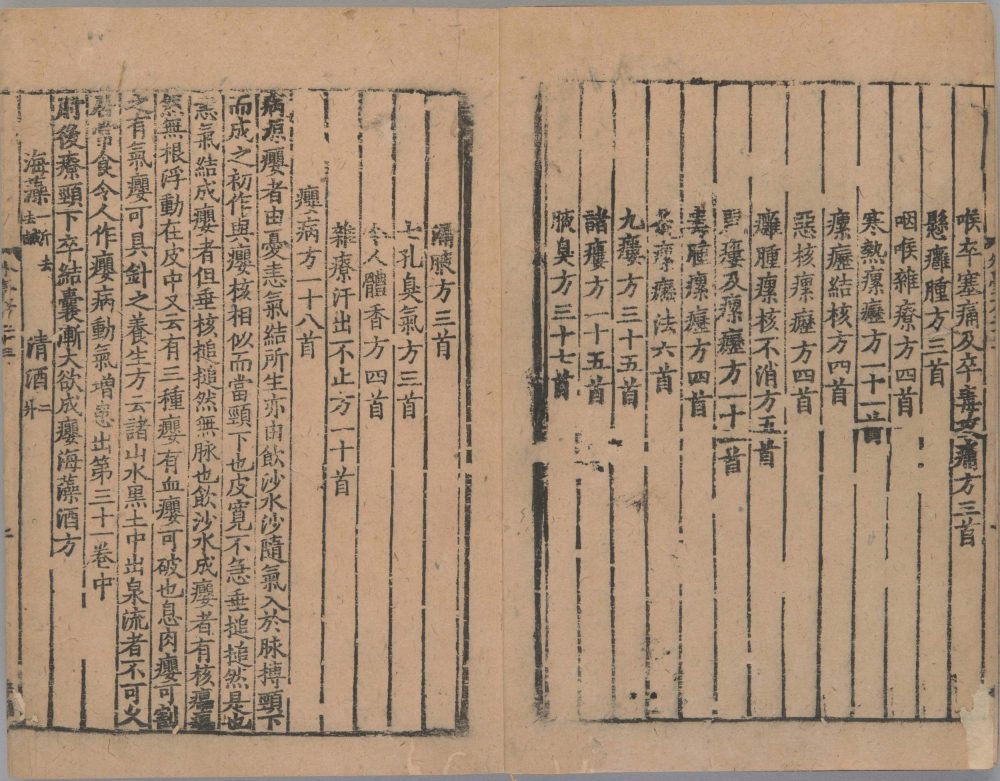 喉卒塞痛及卒毒攻痛方三首
懸癰腫方三首
咽喉雜療方四首
寒熱瘰癧方一十一首
瘰癧結核方四首
惡核瘰癧方四首
癰腫瘰核不消方五首
瘻及瘰癧方一十二首
毒腫瘰癧方四首
灸瘰癧法六首
九瘻方三十五首
諸瘻方一十五首
腋臭方三十七首
漏腋方三首
七孔臭氣方三首
令人體香方四首
雜療汗出不止方一十首
癭病方一十八首
病源癭者由憂恚氣結所生亦由飲沙水沙隨氣入於脉搏頸下
而成之初作與癭核相似而當頸下也皮寬不急垂搥搥然是也
恚氣結成癭者但垂核搥搥然無脉也飲沙水成癭者有核㿔㿔
然無根浮動在皮中又云有三種癭有血癭可破也息肉癭可割
之有氣癭可具針之養生方云諸山水黑土中出泉流者不可久
居常食令人作癭病動氣增患出第三十一卷中
肘後療頸下卒結囊漸大欲成癭海藻酒方
海藻一斤去鹹 清酒二升